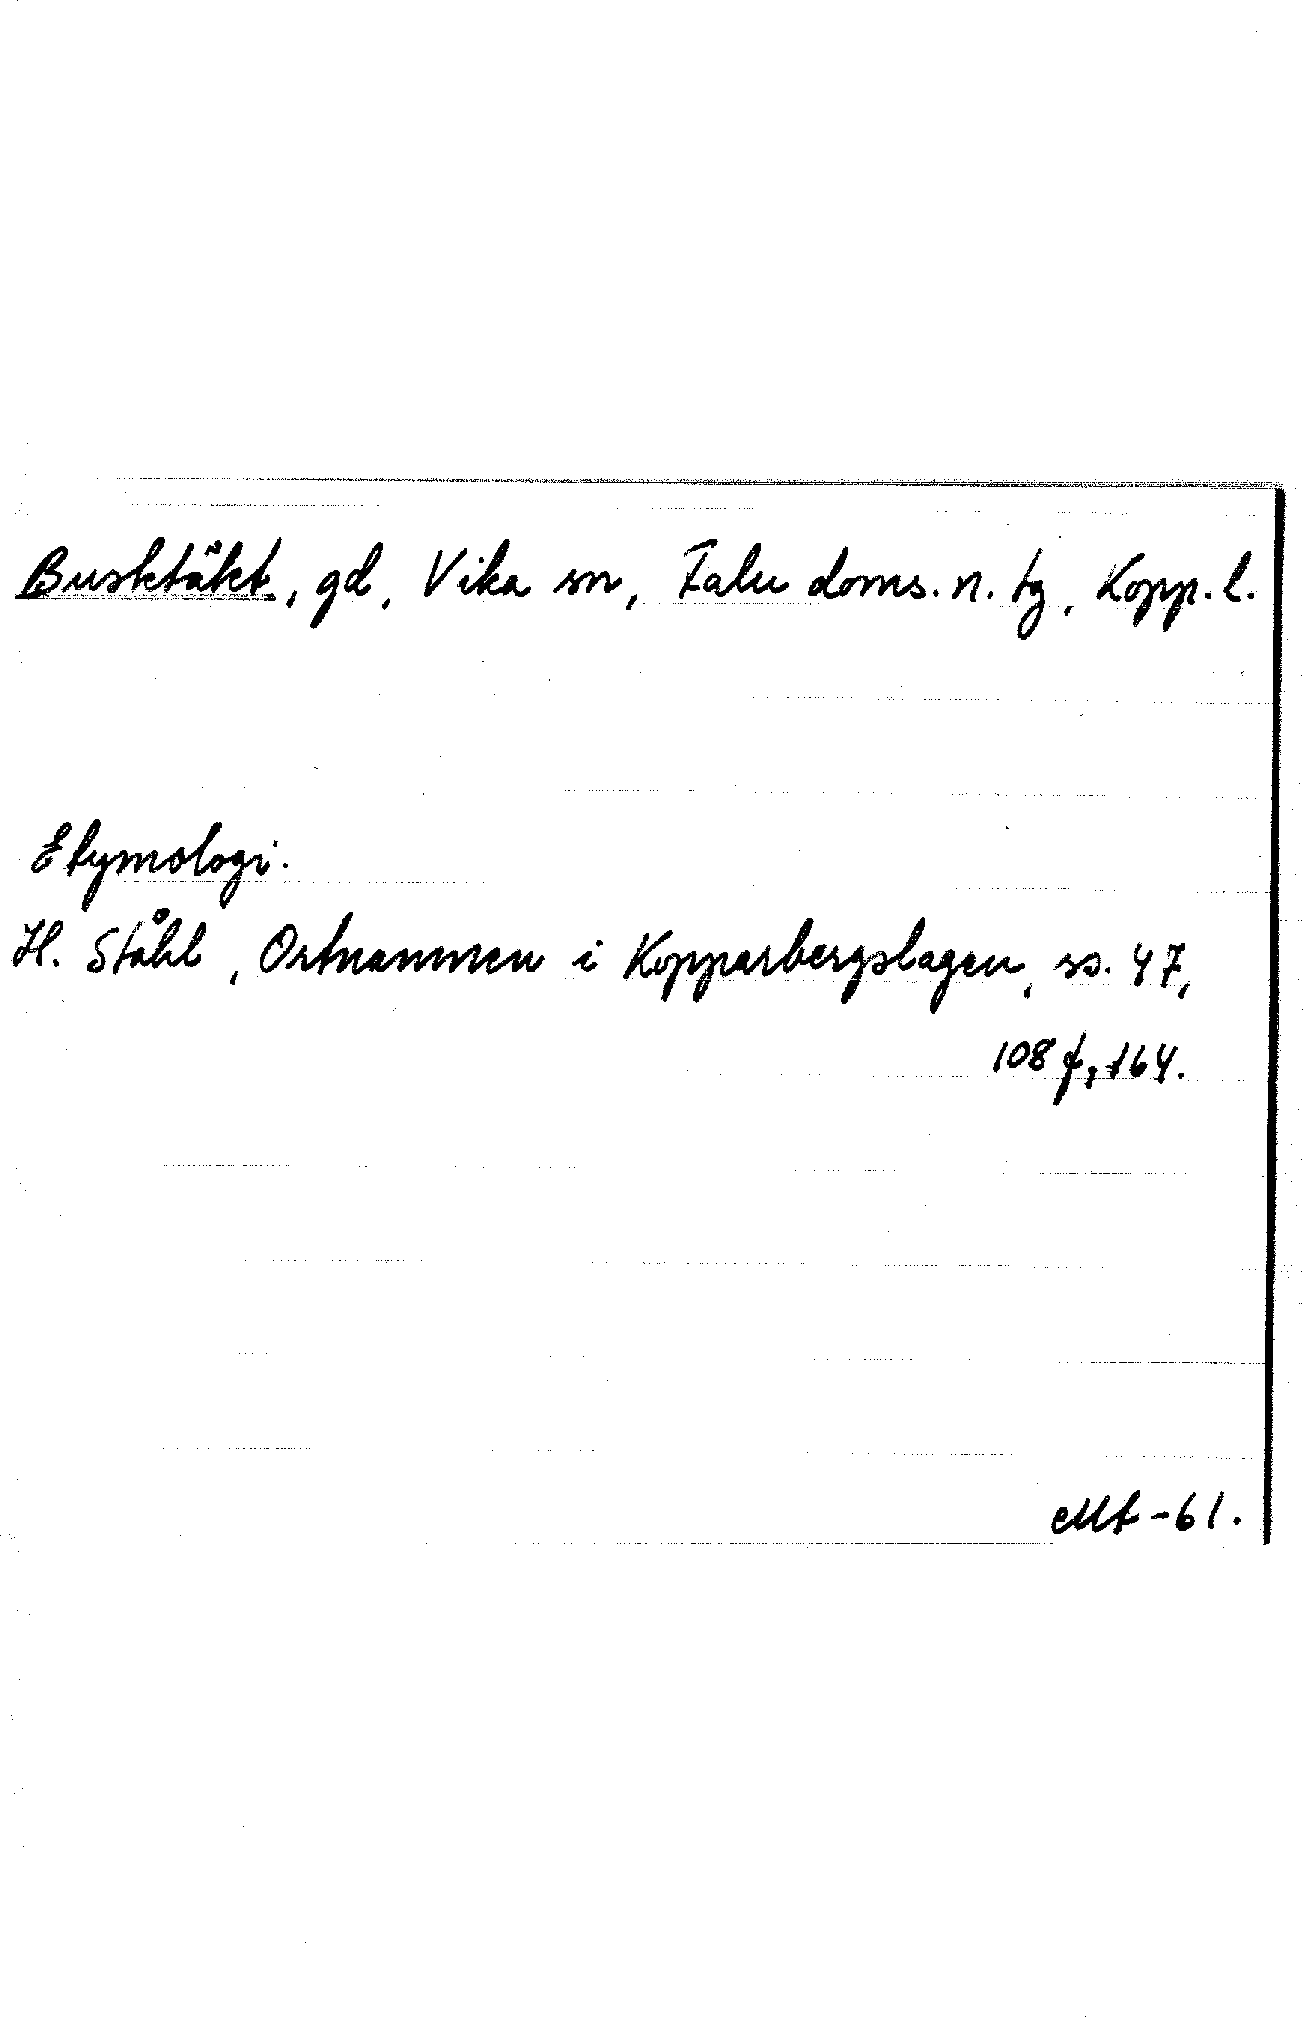 Busktäkt, gd, Vika sn, Falu doms. n. tg, Kopp. l.
Etymologi.
H. Ståhl, Ortnamnen i Kopparbergslagen, ss. 47,
108 f, 164.
Mt -61.